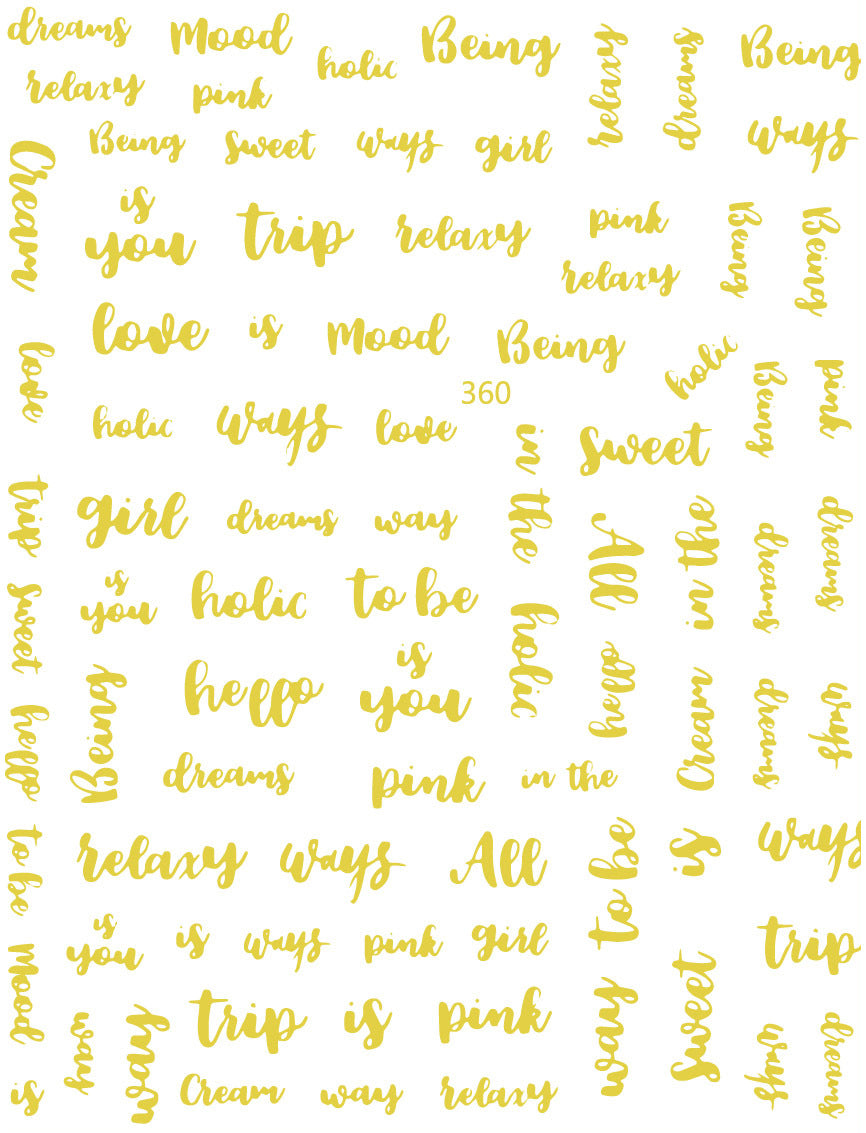 dreams Mood holic Being relaxy dreams Being
relaxy pink
Being sweet ways girl ways
Cream is you trip relaxy pink relaxy Being Being
love is Mood Being holic
love 360 Being pink
holic ways love in the sweet
trip girl dreams way All in the dreams dreams
sweet is you holic to be holic
hello Being hello is you hello Cream dreams ways
dreams pink in the
to be relaxy ways All way to be is ways
is you is ways pink girl trip
Mood way way trip is pink sweet ways dreams
is Cream way relaxy